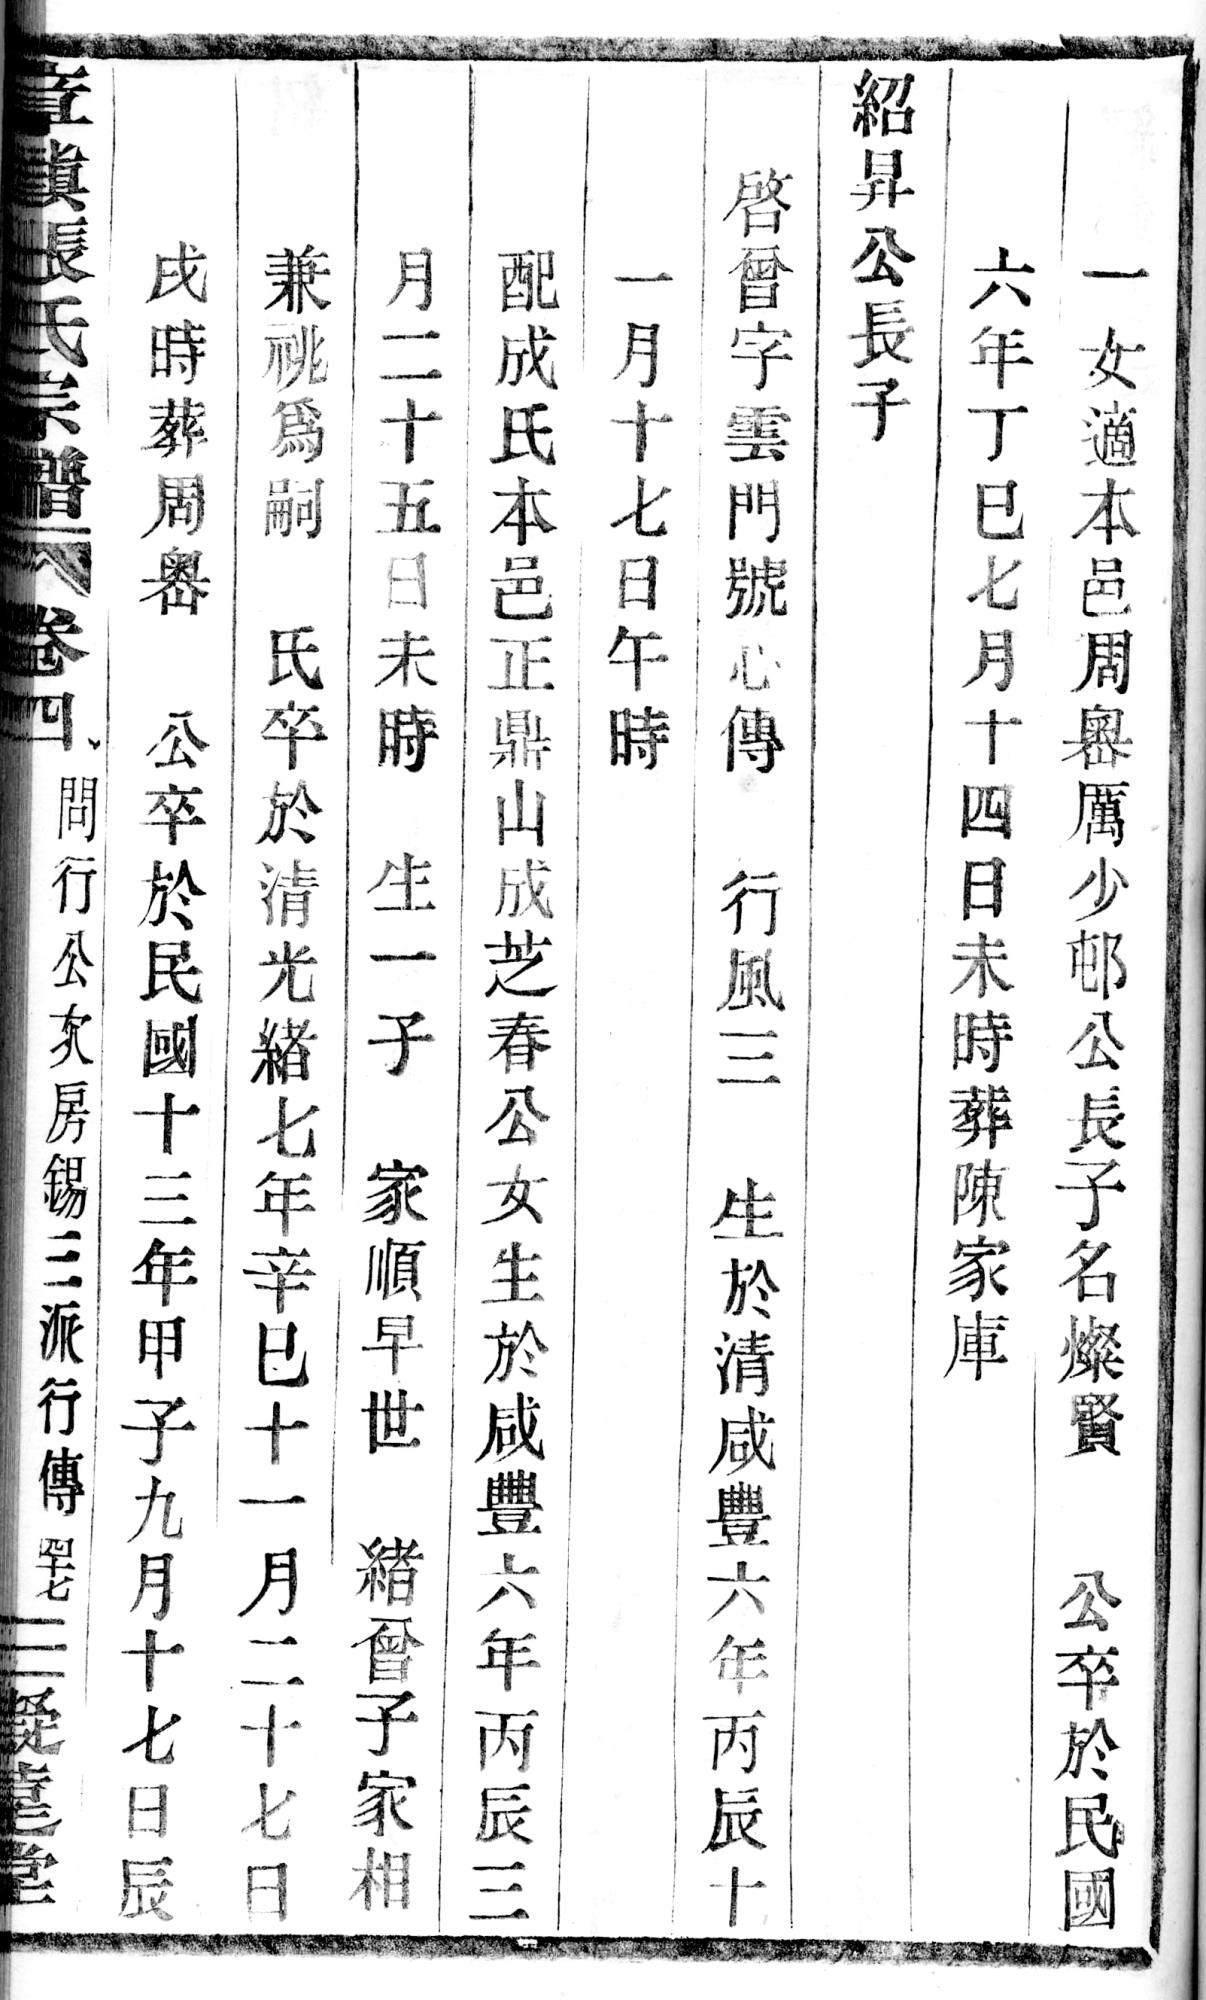 一女適本邑周嶴厲少邨公長子名燦賢　公卒於民國
六年丁巳七月十四日未時葬陳家庫
紹昇公長子
啓曾字雲門號心傳　行風三　生於清咸豐六年丙辰十
一月十七日午時
配成氏本邑正鼎山成芝春公女生於咸豐六年丙辰三
月二十五日未時　生一子　家順早世　緒曾子家相
兼祧爲嗣　氏卒於清光緒七年辛巳十一月二十七日
戌時葬周嶴　公卒於民國十三年甲子九月十七日辰
張氏宗譜　卷四　問行公亥房錫三派行傳　四十七　三凝堂